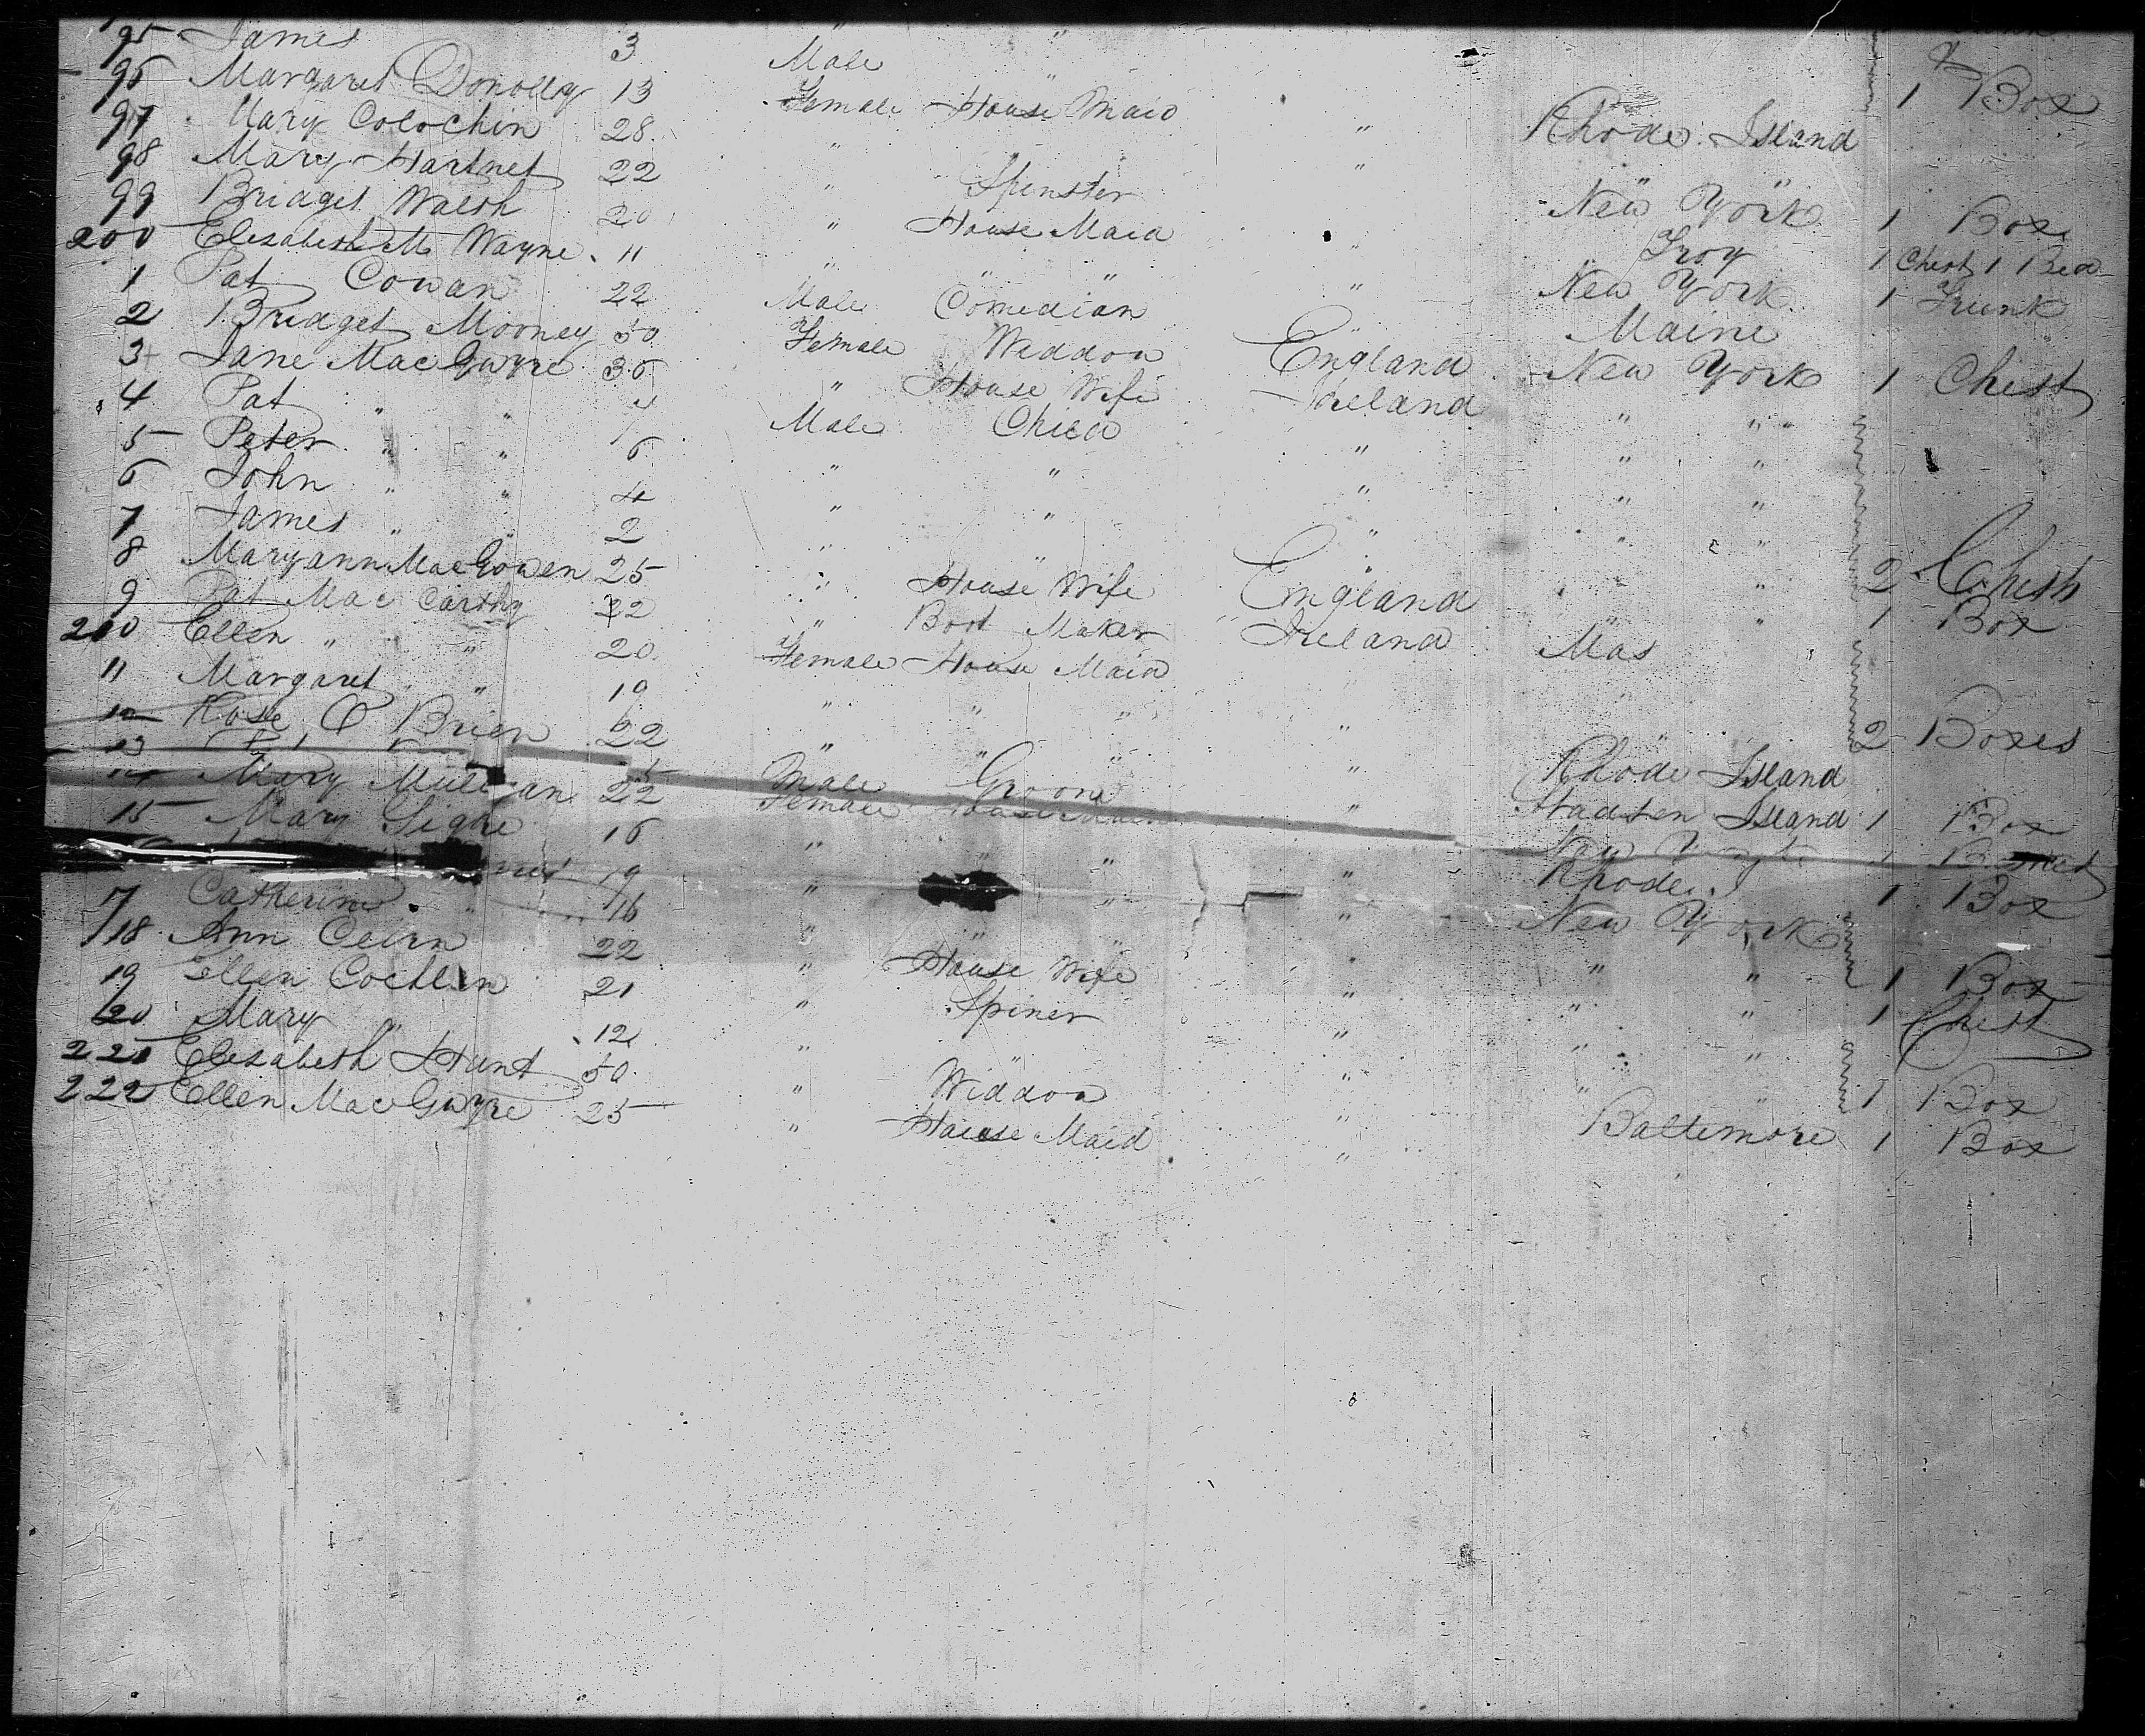 95 James 3 Male "
96 Margaret Donolly 13 Female House Maid 1 Box
97 Mary Colochin 28 " " Rhode Island
98 Mary Hartnet 22 " Spinster " " "
99 Bridget Walsh 20 " House Maid " New York 1 Box
200 Elesabesh M Wayne 11 " " " Troy 1 Chest 1 Bed
1 Pat Cowan 22 Male Comedian " New York 1 Trunk
2 Bridget Mooney 50 Female Widdow England Maine
3 Jane Mac Gwyre 36 " House Wife Ireland New York 1 Chest
4 Pat " " Male Child " " "
5 Peter " " 6 " " " " "
6 John " " 4 " " " " "
7 James " " 2 " " " " "
8 Maryann Mac Gowen 25 " House Wife England " " 2 Chests
9 Pat Mac Carthy 22 " Boot Maker Ireland Mas 1 Box
210 Ellen " " 20 Female House Maid
11 Margaret " 19 " " " "
12 Rose O Brien 22 " " " " Rhode Island 2 Boxes
13 Male Groom " Stadten Island 1 Box
14 Mary Mulligan 22 Female House Maid " New 1
15 Mary Sighe 16 " " " " Rhode 1 Box
19 " " " New York
17 Catherine " 16 " " " " " "
18 Ann Ceirn 22 " House Wife " " " 1 Box
19 Ellen Cochlin 21 " Spiner " " " 1 Chest
20 Mary " 12 " " " " "
221 Elesabesh Hunt 50 " Widdow " " " 1 Box
222 Ellen Mac Gwyre 25 " House Maid " Baltimore 1 Box